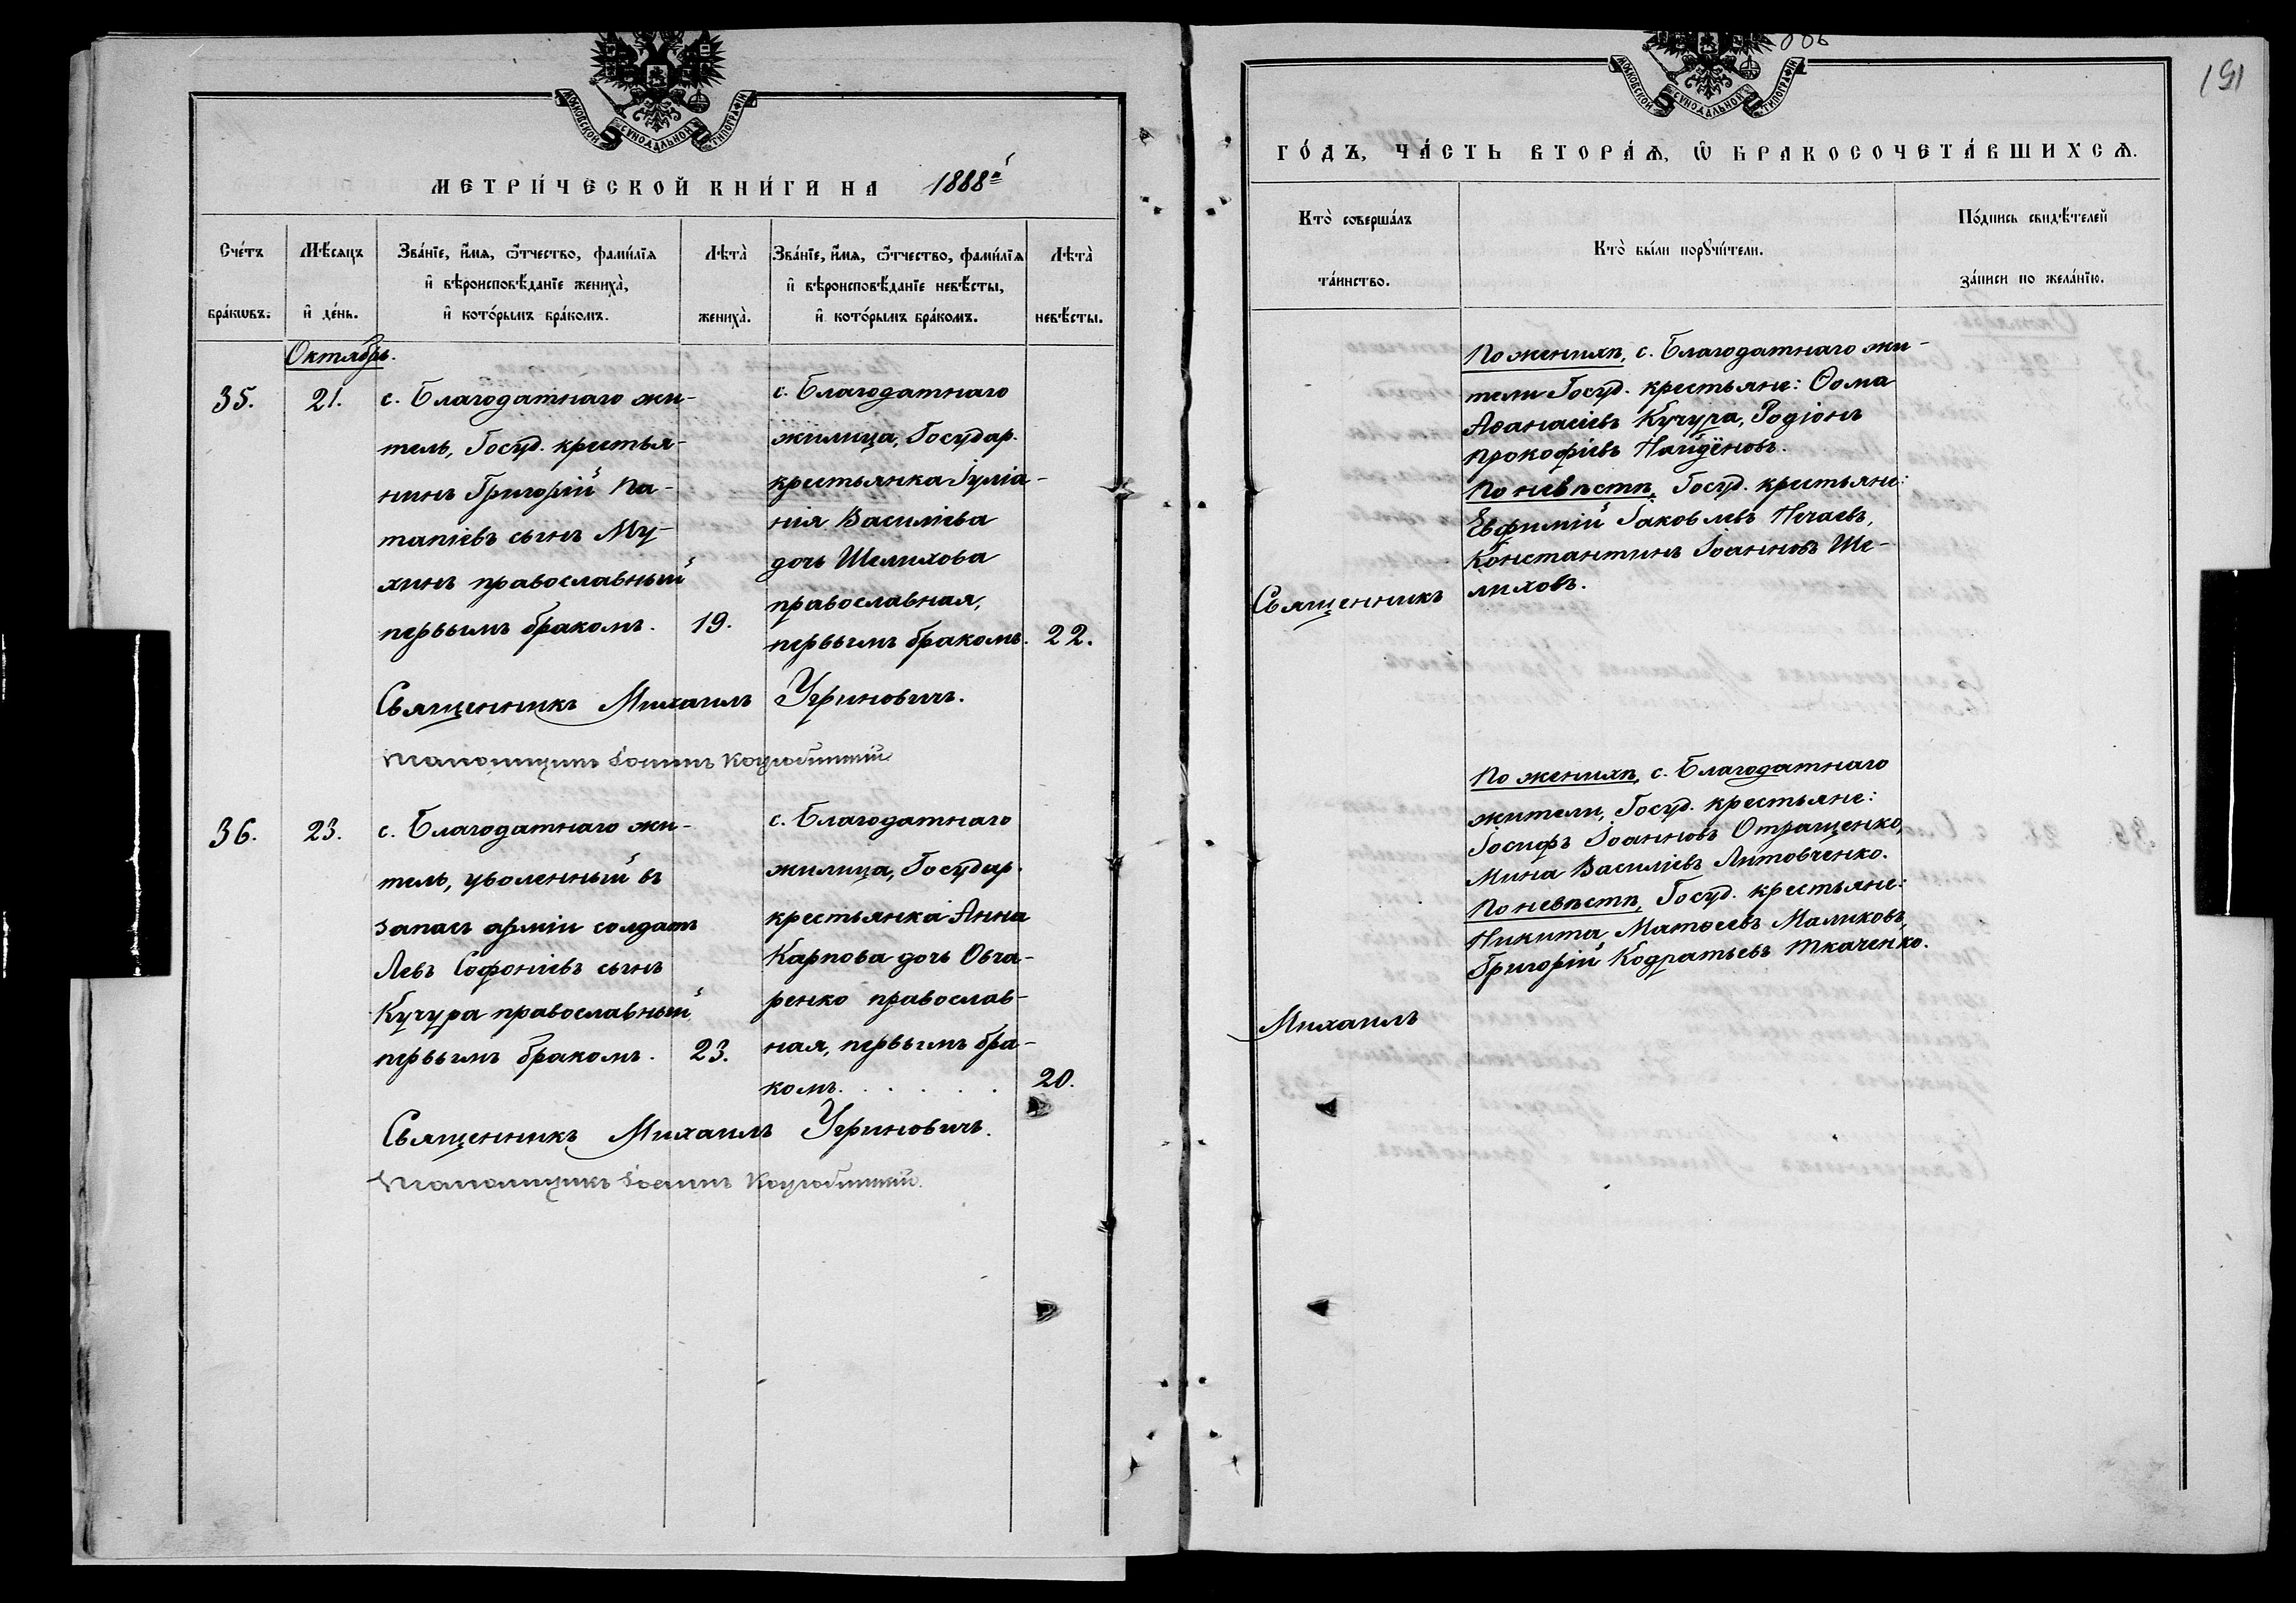 МОСКОВСКОЙ СѴНОДАЛЬНОЙ ТИПОГРАФІИ
МЕТРИ́ЧЕСКОЙ КНИ́ГИ НА 1888й
Сче́тъ бра́кѡвъ.
Мѣ́сяцъ и҆ де́нь.
Зва́нїе, и҆́мя, ѻ҆́тчество, фами́лїя
и҆ вѣроисповѣ́данїе жениха̀,
и҆ кото́рымъ бра́комъ.
Лѣта̀ жениха̀.
Зва́нїе, и҆́мя, ѻ҆́тчество, фами́лїя
и҆ вѣроисповѣ́данїе невѣ́сты,
и҆ кото́рымъ бра́комъ.
Лѣта̀ невѣ́сты.
Октябрь.
35.
21.
с. Благодатнаго жи-
тель, Госуд. крестья-
нинъ Григорій Па-
тапіевъ сынъ Му-
хинъ православный
первымъ бракомъ.
19.
с. Благодатнаго
жилица, Государ.
крестьянка Іуліа-
нія Василіева
дочь Шелихова
православная,
первымъ бракомъ.
22.
Священникъ Михаилъ Угриновичъ.
Псаломщикъ Іоаннъ
36.
23.
с. Благодатнаго жи-
тель, уволенный въ
запасъ арміи солдатъ
Левъ Софоніевъ сынъ
Кучура православный
первымъ бракомъ.
23.
с. Благодатнаго
жилица, Государ.
крестьянка Анна
Карпова дочь Овча-
ренко православ-
ная, первымъ бра-
комъ. . . . . .
20.
Священникъ Михаилъ Угриновичъ.
Псаломщикъ Іоаннъ
151
МОСКОВСКОЙ СѴНОДАЛЬНОЙ ТИПОГРАФІИ
ГО́ДЪ, ЧА́СТЬ ВТОРА́Ѧ, Ѽ БРАКОСОЧЕТА́ВШИХСѦ.
Кто̀ соверша́лъ
та́инство.
Кто̀ бы́ли порꙋчи́тели.
По́дпись свидѣ́телей
за́писи по жела́нїю.
По женихѣ, с. Благодатнаго жи-
тели Госуд. крестьяне: Ѳома
Аѳанасіевъ Кучура, Родіонъ
Прокофіевъ Найдёновъ.
По невѣстѣ, Госуд. крестьяне:
Евфимій Іаковлевъ Нечаевъ,
Константинъ Іоанновъ Ше-
лиховъ.
Священникъ
По женихѣ, с. Благодатнаго
жители, Госуд. крестьяне:
Іосифъ Іоанновъ Отращенко,
Мина Василіевъ Литовченко.
По невѣстѣ, Госуд. крестьяне:
Никита Матѳеевъ Маликовъ,
Григорій Кодратьевъ Ткаченко.
Михаилъ